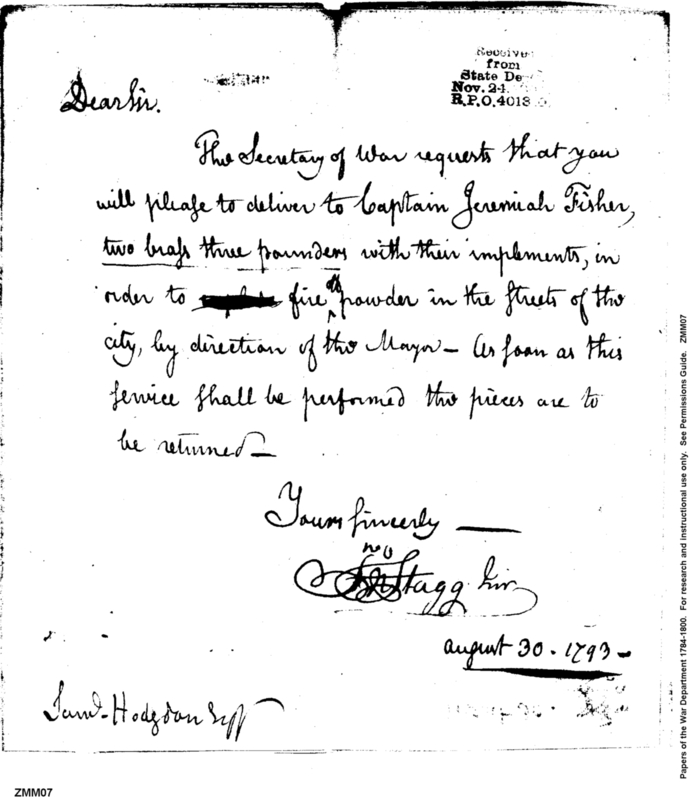 Received
from
State De
Nov. 24.
R.P.O. 4013
Dear Sir.
The Secretary of War requests that you
will please to deliver to Captain Jeremiah Fisher,
two brass three pounders with their implements, in
order to fire off powder in the streets of the
city, by direction of the Mayor – As soon as this
service shall be performed the pieces are to
be returned –
Yours sincerely
Jno Stagg Junr
August 30 - 1793 -
Saml Hodgdon Esqr
ZMM07
Papers of the War Department 1784-1800. For research and instructional use only. See Permissions Guide. ZMM07